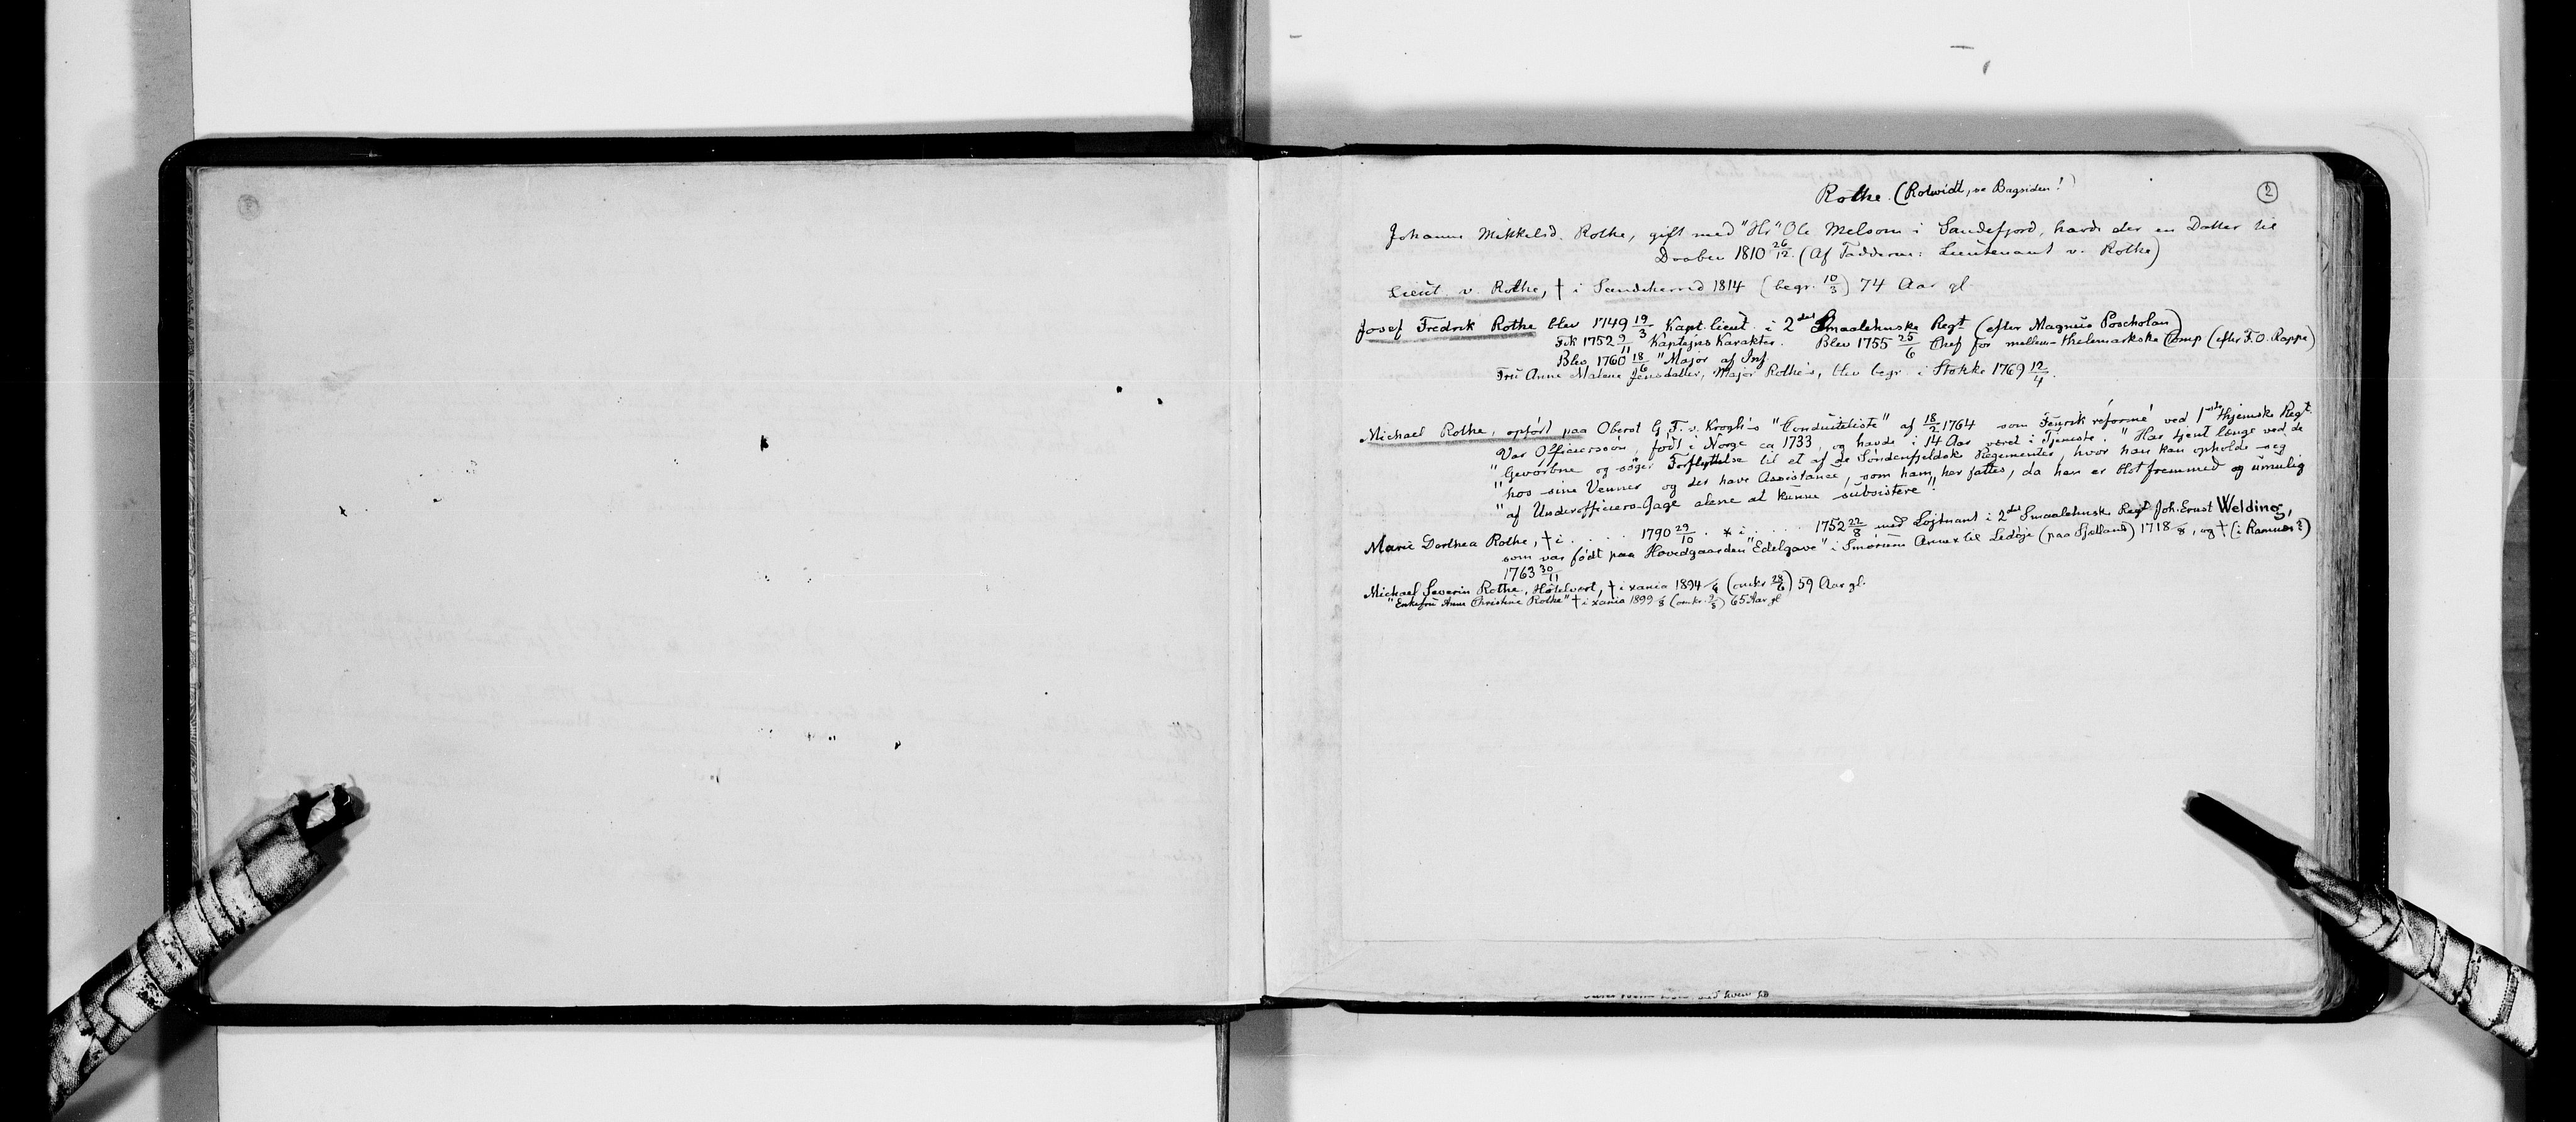 Rothe. (Rotwidt, se Bagsiden!)
2
Johanne Mikkelsd. Rothe, gift med "Hr" Ole Melsom i Sandefjord, havde der en Datter til
Daaben 1810 26/12. (Af Fadderne: Lieutenant v. Rothe)
Lieut. v. Rothe, † i Sandeherred 1814 (begr. 10/3) 74 Aar gl.
Josef Fredrik Rothe blev 1749 19/3 Kapt. lieut. i 2det Smaalehnske Regt (efter Magnus Poscholan)
Fik 1752 9/11 Kaptejns Karakter. Blev 1755 25/6 Chef for mellem-thelemarkske Comp (efter F. O. Rappe)
Blev 1760 18/6 Major af Inf.
Fru Anne Malene Jensdatter, Major Rothe's, blev begr. i Stokke 1769 12/4.
Michael Rothe, opført paa Oberst G. F. v. Krogh's "Conduiteliste" af 18/2 1764 som Fenrik reformé ved 1ste thjemske Regt.
Var Officierssøn, født i Norge ca 1733, og havde i 14 Aar været i Tjeneste. "Har tjent længe ved de
"Gevorbne og søger Forflyttelse til et af de Søndenfjeldske Regimenter, hvor han kan opholde sig
"hos sine Venner og der have Assistance, som ham her fattes, da han er blot fremmed og umulig
"af Underofficiers-Gage alene at kunne subsistere".
Marie Dorthea Rothe, † i . . . . . 1790 29/10. * i . . . . . 1752 22/8 med Løjtnant i 2det Smaalehnske Regt Joh. Ernst Welding,
som var født paa Hovedgaarden "Edelgave" i Smørum Annex til Ledøje (paa Sjælland) 1718 /8, og † (i Ramnes?)
1763 30/11
Michael Severin Rothe, Hôtelvert, † i xania 1894 /6 (omkr 28/6) 59 Aar gl.
"Enkefru Anne Christine Rothe" † i xania 1899 /8 (omkr. 2/8) 65 Aar gl